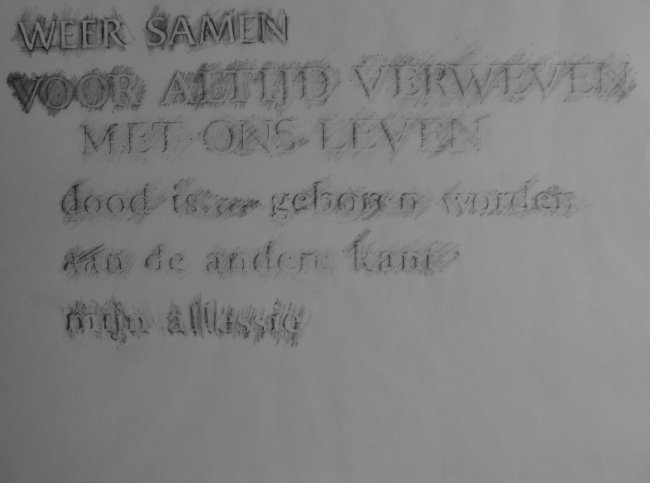 WEER SAMEN
VOOR ALTIJD VERWEVEN
MET ONS LEVEN
dood is... geboren worden
aan de andere kant
mijn allessie